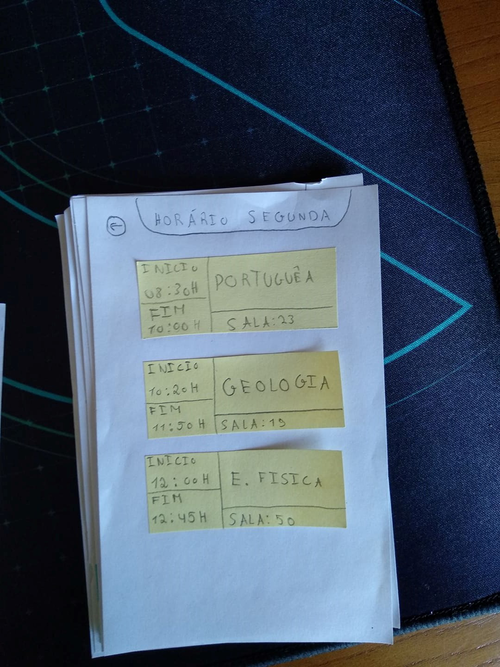 ← HORÁRIO SEGUNDA
INICIO
08:30H
FIM
10:00H
PORTUGUÊA
SALA:23
INICIO
10:20H
FIM
11:50H
GEOLOGIA
SALA:19
INÍCIO
12:00H
FIM
12:45H
E. FISICA
SALA:50